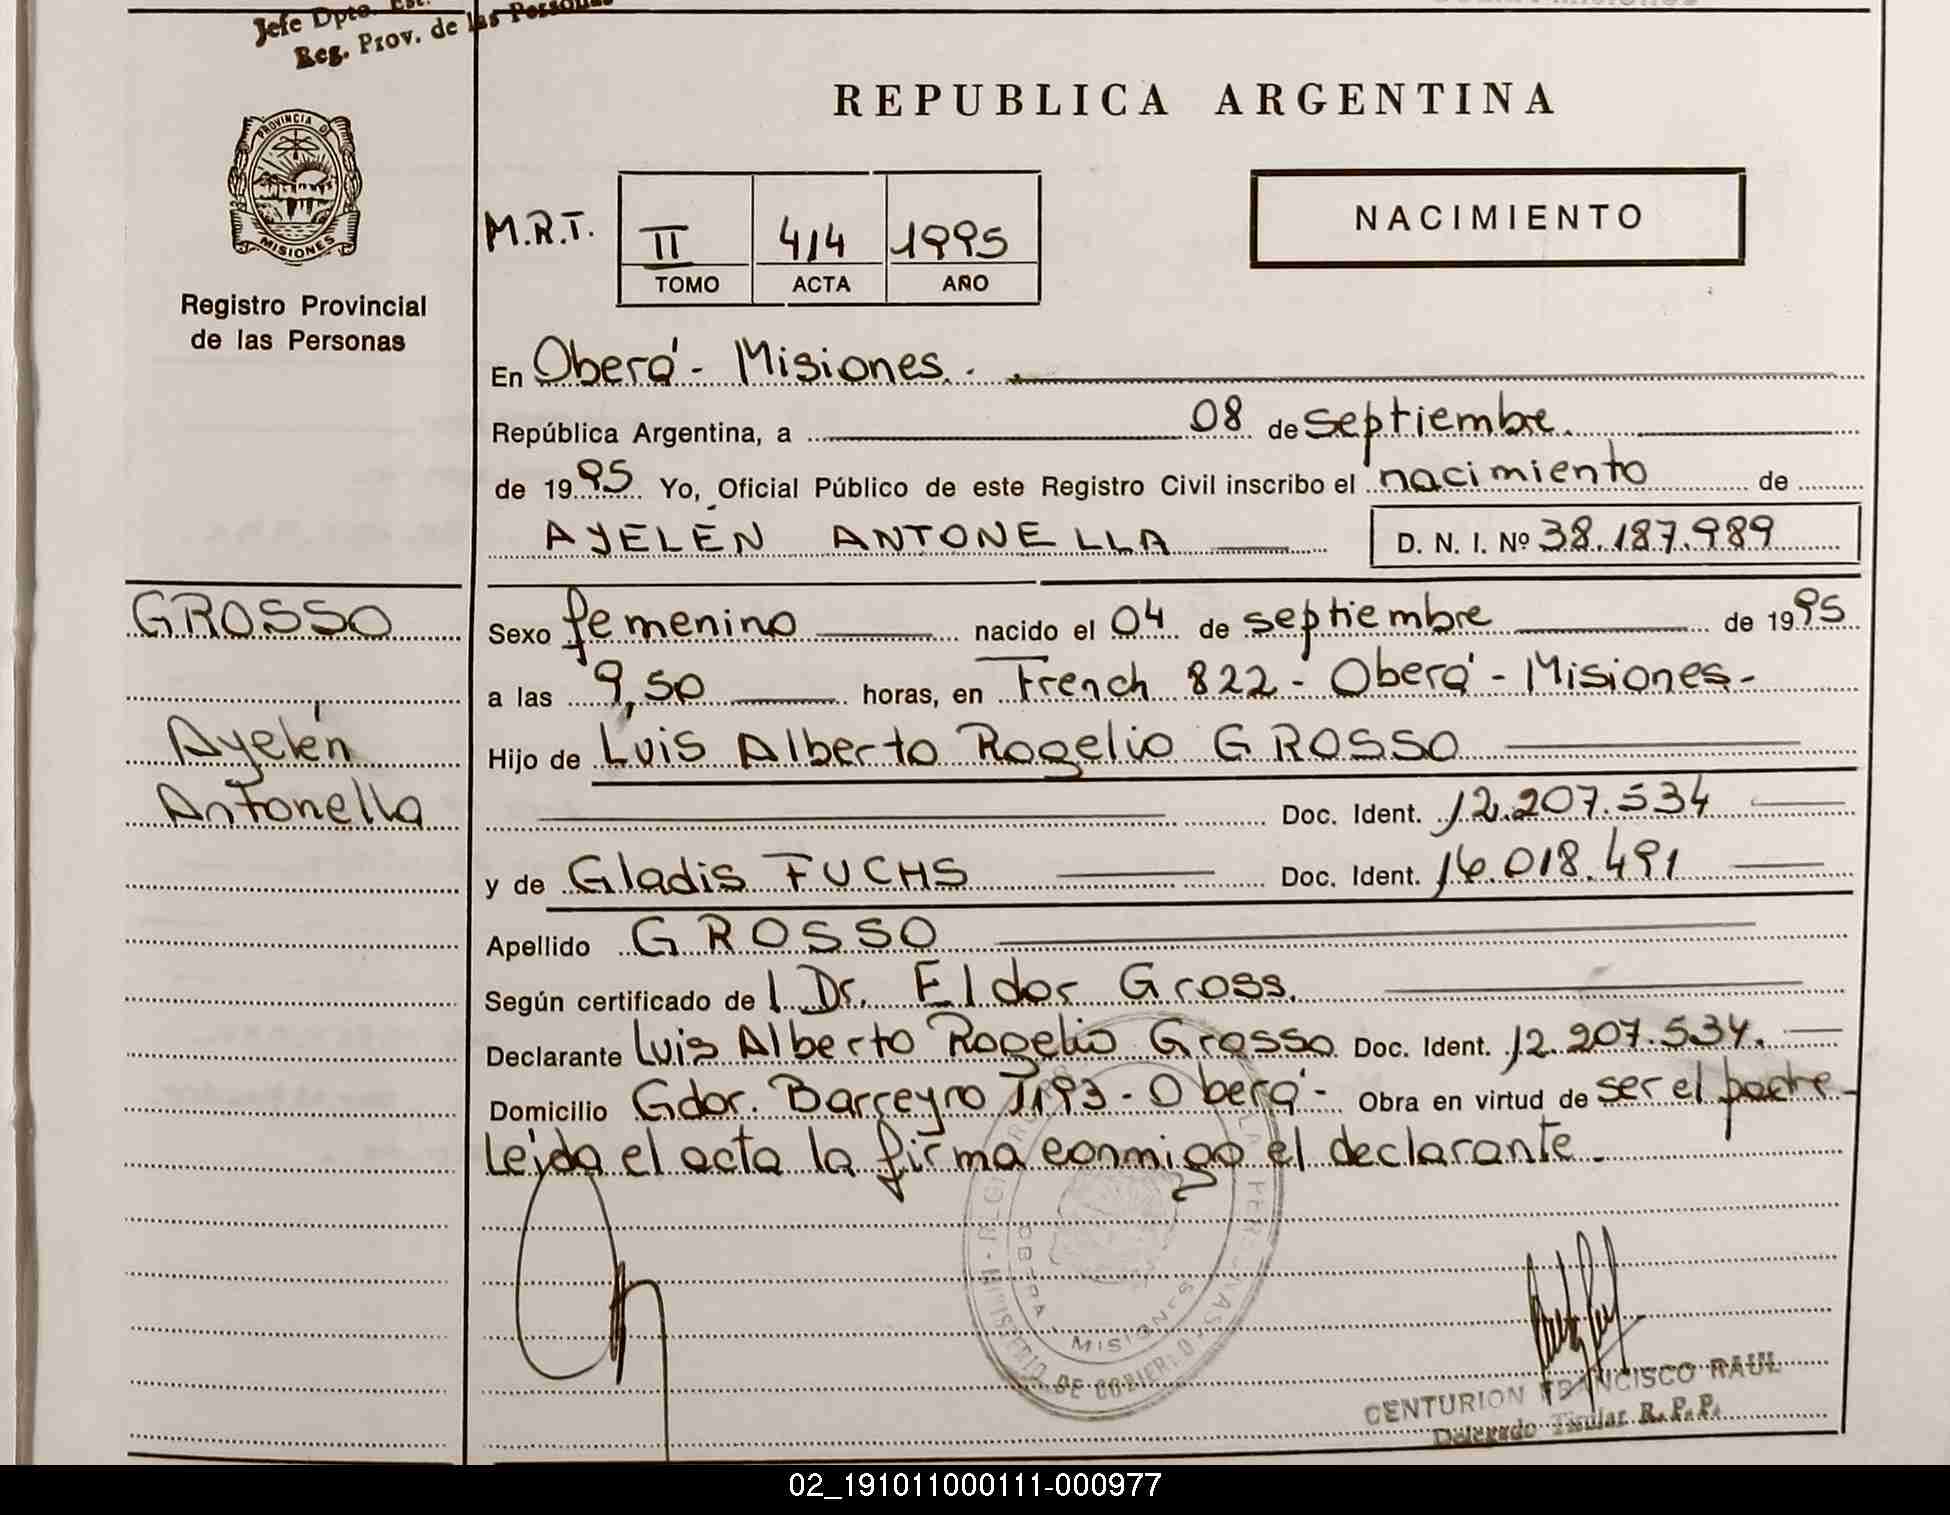 Jefe Dpto. Est.
Reg. Prov. de las Personas
PROVINCIA DE
MISIONES
Registro Provincial
de las Personas
REPUBLICA ARGENTINA
NACIMIENTO
M.R.T. II 414 1995
TOMO ACTA AÑO
En Oberá - Misiones.
República Argentina, a 08 de septiembre.
de 1995 Yo, Oficial Público de este Registro Civil inscribo el nacimiento de
AYELÉN ANTONELLA D. N. I. Nº 38.187.989
GROSSO
Ayelén
Antonella
Sexo femenino nacido el 04 de septiembre de 1995
a las 9,50 horas, en French 822 - Oberá - Misiones -
Hijo de Luis Alberto Rogelio GROSSO
Doc. Ident. 12.207.534
y de Gladis FUCHS Doc. Ident. 16.018.491
Apellido GROSSO
Según certificado de l Dr. Eldor Gross.
Declarante Luis Alberto Rogelio Grosso Doc. Ident. 12.207.534.
Domicilio Gdor. Barreyro 1193 - Oberá - Obra en virtud de ser el padre -
Leída el acta la firma conmigo el declarante.
OBERA MISIONES
MINISTERIO DE GOBIERNO
CENTURION FRANCISCO RAUL
Delegado Titular R.P.P.
02_191011000111-000977